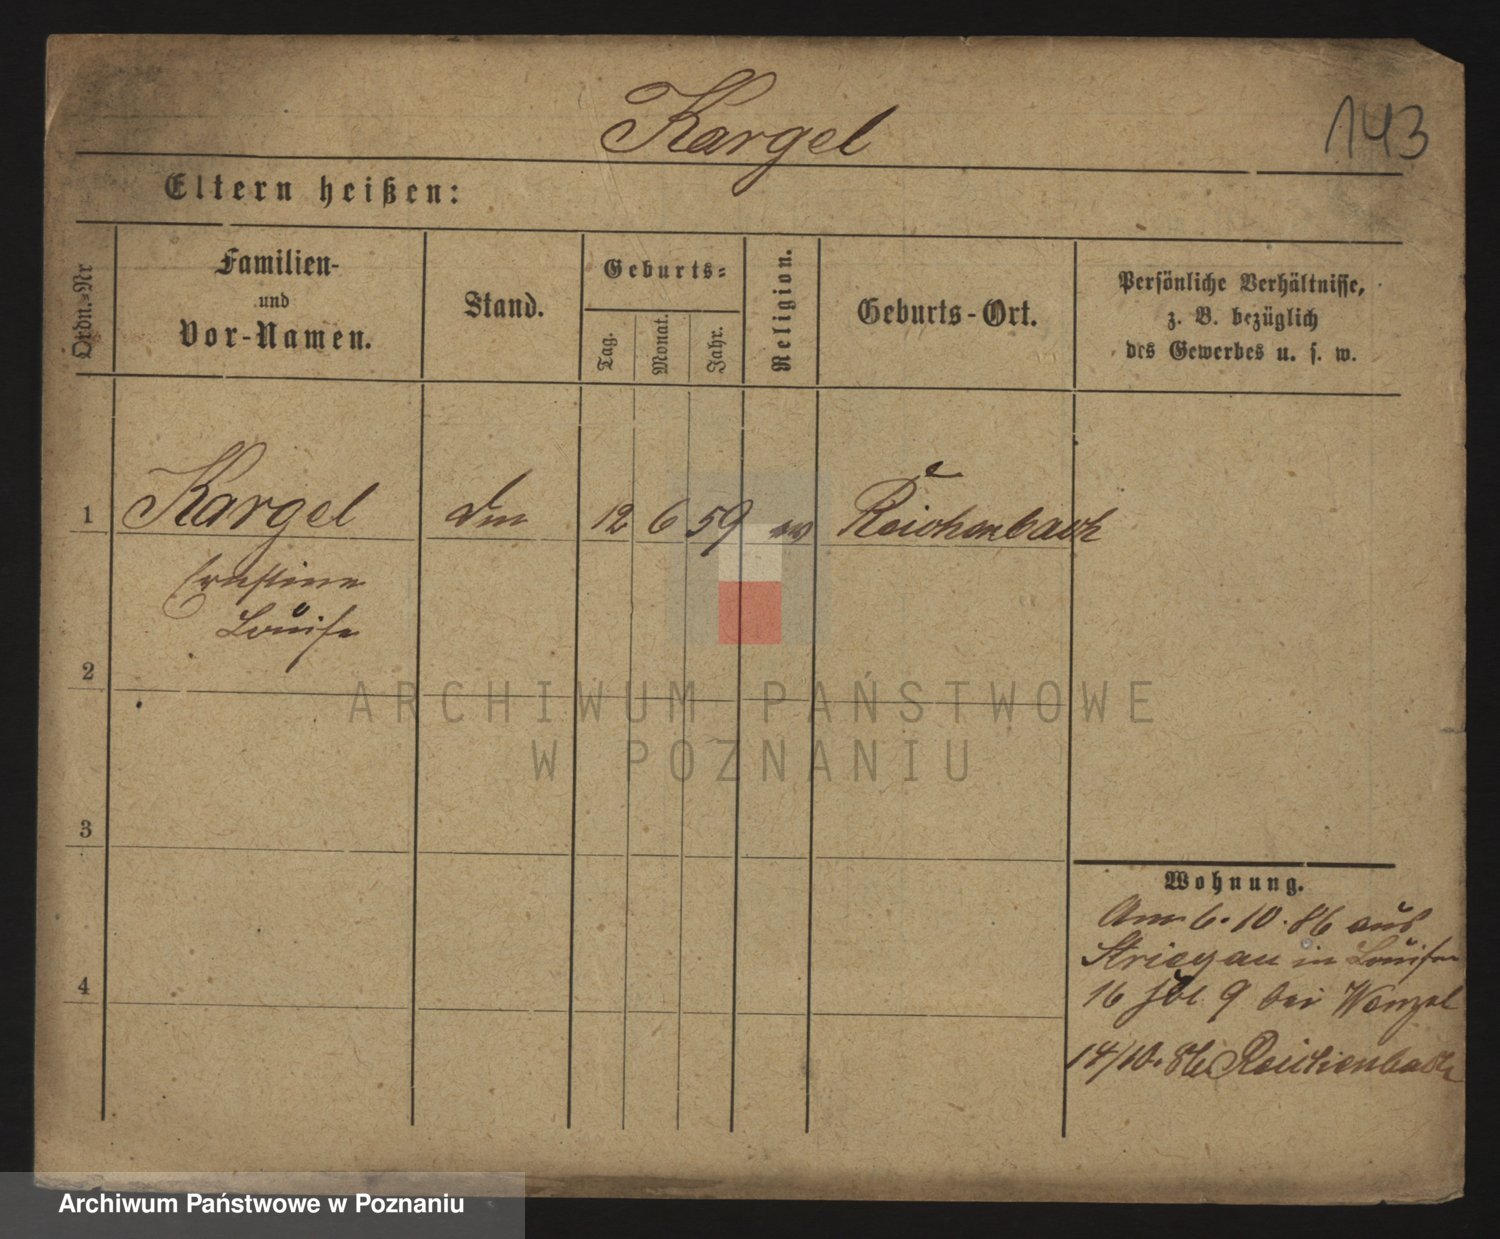 Kargel
143
Eltern heißen:
Ordn.-Nr
Familien-
und
Vor-Namen.
Stand.
Geburts-
Tag.
Monat.
Jahr.
Religion.
Geburts-Ort.
Persönliche Verhältnisse,
z. B. bezüglich
des Gewerbes u. s. w.
1 Kargel 12 6 59 ev Reichenbach
Ernstine
Louise
2
3
4
Wohnung.
Am 6.10.86 aus
Striegau in Louisen
16 9 bei Wenzel
14/10.86 Reichenbach
ARCHIWUM PAŃSTWOWE
W POZNANIU
Archiwum Państwowe w Poznaniu